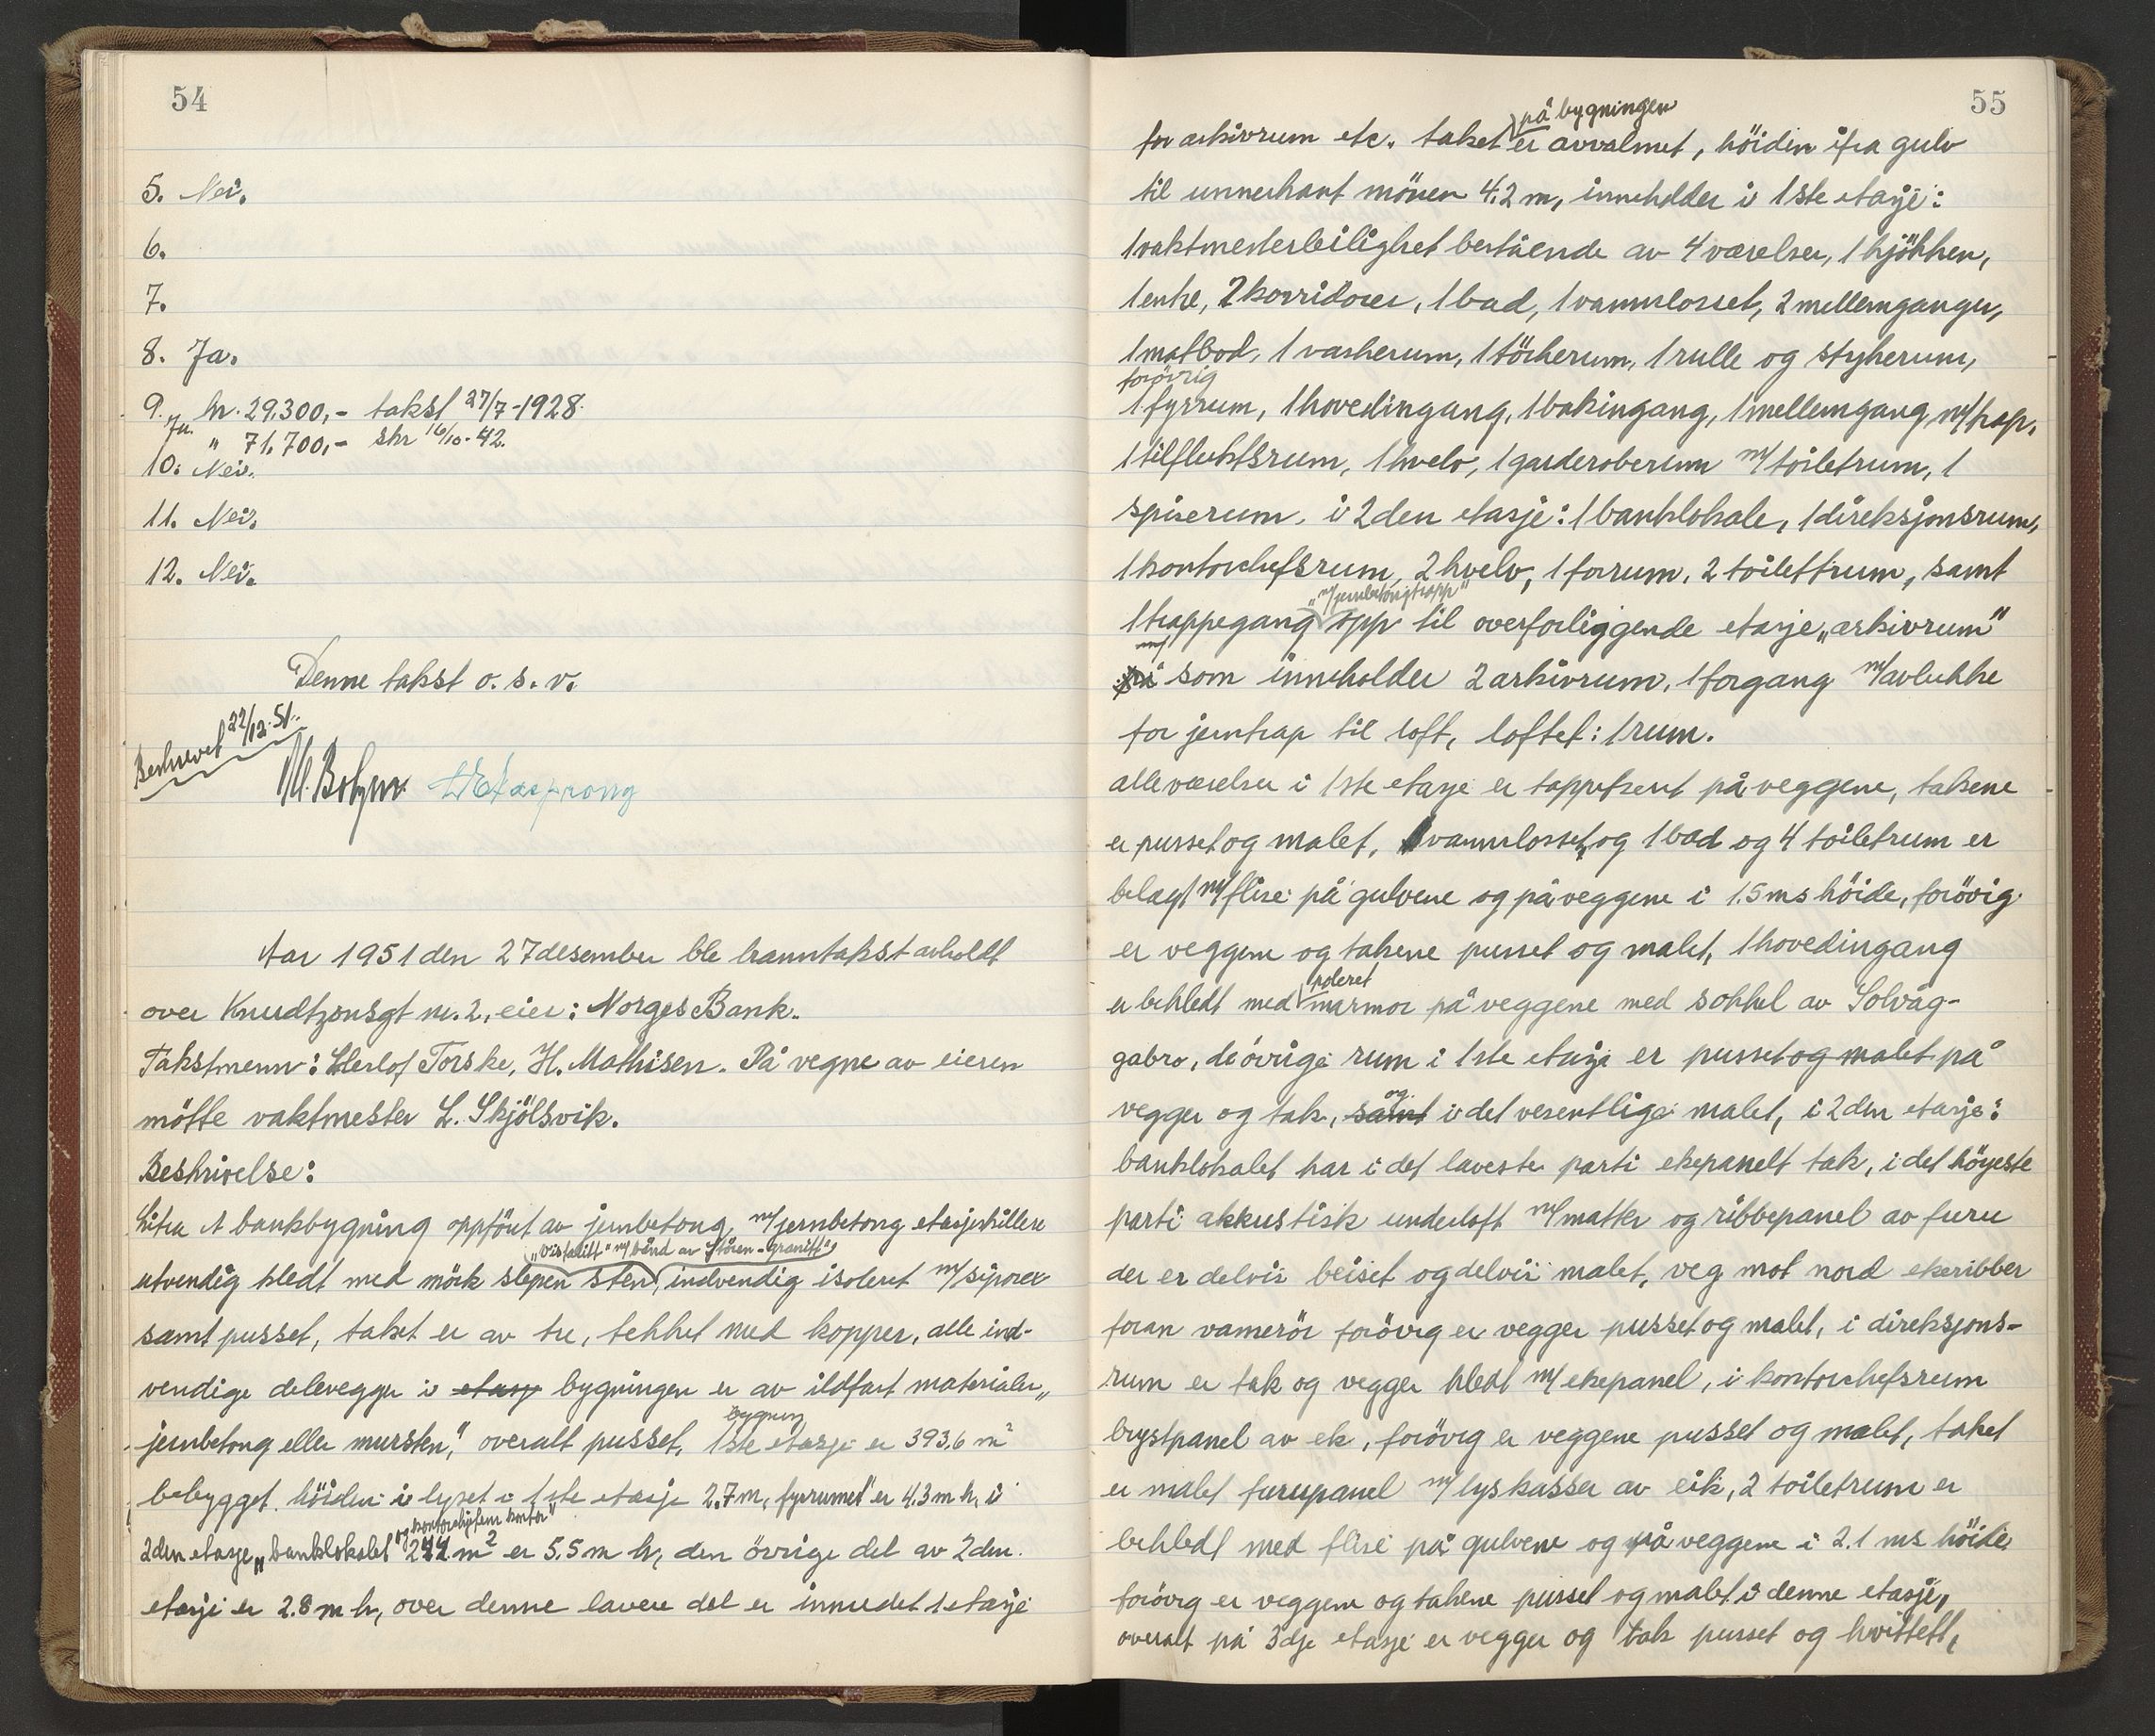 54
5. Nei.
6.
7.
8. Ja.
9. kr. 29.300,- takst 27/7-1928.
Ja. " 71.700,- skr 16/10-42.
10. Nei.
11. Nei.
12. Nei.
Denne takst o. s. v.
Beskrevet 22/12-51.
Aar 1951 den 27 desember ble branntakst avholdt
over Knudtzonsgt nr. 2, eier: Norges Bank.
Takstmenn: Herlof Torske, H. Mathisen. På vegne av eieren
mötte vaktmester L. Skjölsvik.
Beskrivelse:
Litra A bankbygning oppfört av jernbetong, m/jernbetong etasjeskillere
"m/ bånd av Stören-Granitt"
utvendig kledt med mörk slepen sten, indvendig isoleret m/siporex
samt pusset, taket er av tre, tekket med kopper, alle ind-
vendige delevegger i etasj bygningen er av ildfast materialer „
jernbetong eller mursten", overalt pusset. 1ste etasje er 393,6 m²
bygning
bebygget. höiden i lyset i 1ste etasje 2.7 m, fyrrumet er 4.3 m h, i
og kontorchefens kontor"
2den etasje „banklokalet 244 m² er 5.5 m h, den övrige del av 2den.
etasje er 2.8 m h, over denne lavere del er innredet 1 etasje
55
på bygningen
for arkivrum etc. taket er avvalmet, höiden ifra gulv
til unnerkant mönen 4.2 m, inneholder i 1ste etasje:
1 vaktmesterleilighet bestående av 4 værelser, 1 kjökken,
1 entre, 2 korridorer, 1 bad, 1 vannclosset, 2 mellemganger,
1 matbod, 1 vaskerum, 1 törkerum, 1 rulle og strykerum,
forövrig
1 fyrrum, 1 hovedingang, 1 bakingang, 1 mellemgang m/trap.
1 tilfluktsrum, 1 hvelv, 1 garderoberum m/toiletrum, 1
spiserum. i 2den etasje: 1 banklokale, 1 direksjonsrum,
1 kontorchefsrum, 2 hvelv, 1 forrum, 2 toilettrum, samt
"m/jernbetongtrapp"
1 trappegang opp til overforliggende etasje „arkivrum"
som inneholder 2 arkivrum, 1 forgang m/avlukke
for jerntrap til loft, loftet: 1 rum.
alle værelser i 1ste etasje er tappetseret på veggene, takene
er pusset og malet, vannclosset, og 1 bad og 4 toiletrum er
belagt m/fliser på gulvene og på veggene i 1.5 ms höide, forövrig
er veggene og takene pusset og malet, 1 hovedingang
poleret
er bekledt med marmor på veggene med sokkel av Solvåg-
gabro, de övrige rum i 1ste etasje er pusset og malet på
og
vegger og tak, samt i det vesentlige malet, i 2den etasje:
banklokalet har i det laveste parti ekepanelt tak, i det höyeste
parti akkustisk underloft m/matter og ribbepanel av furu
der er delvis beiset og delvis malet, veg mot nord ekeribber
foran varmerör forövrg er vegger pusset og malet, i direksjons-
rum er tak og vegger kledt m/ekepanel, i kontorchefsrum
brystpanel av ek, forövrg er veggene pusset og malet, taket
er malet furupanel m/lyskasser av eik, 2 toiletrum er
bekledt med fliser på gulvene og på veggene i 2.1 ms höide
forövrg er veggene og takene pusset og malet i denne etasje,
overalt på 3dje etasje er vegger og tak pusset og hvittett,